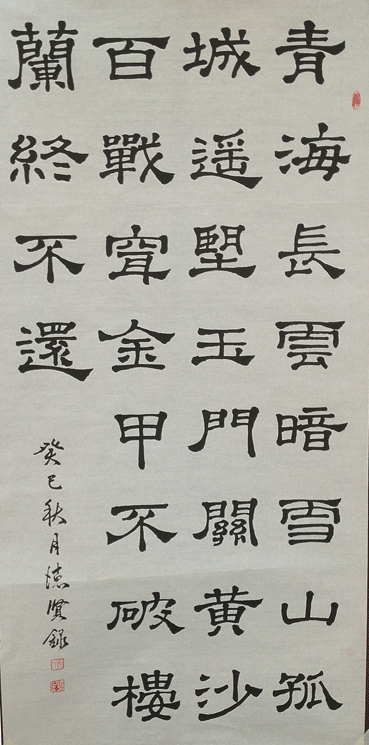 青海長雲暗雪山孤
城遥望玉門關黄沙
百戰穿金甲不破樓
蘭終不還
癸巳秋月德賢錄